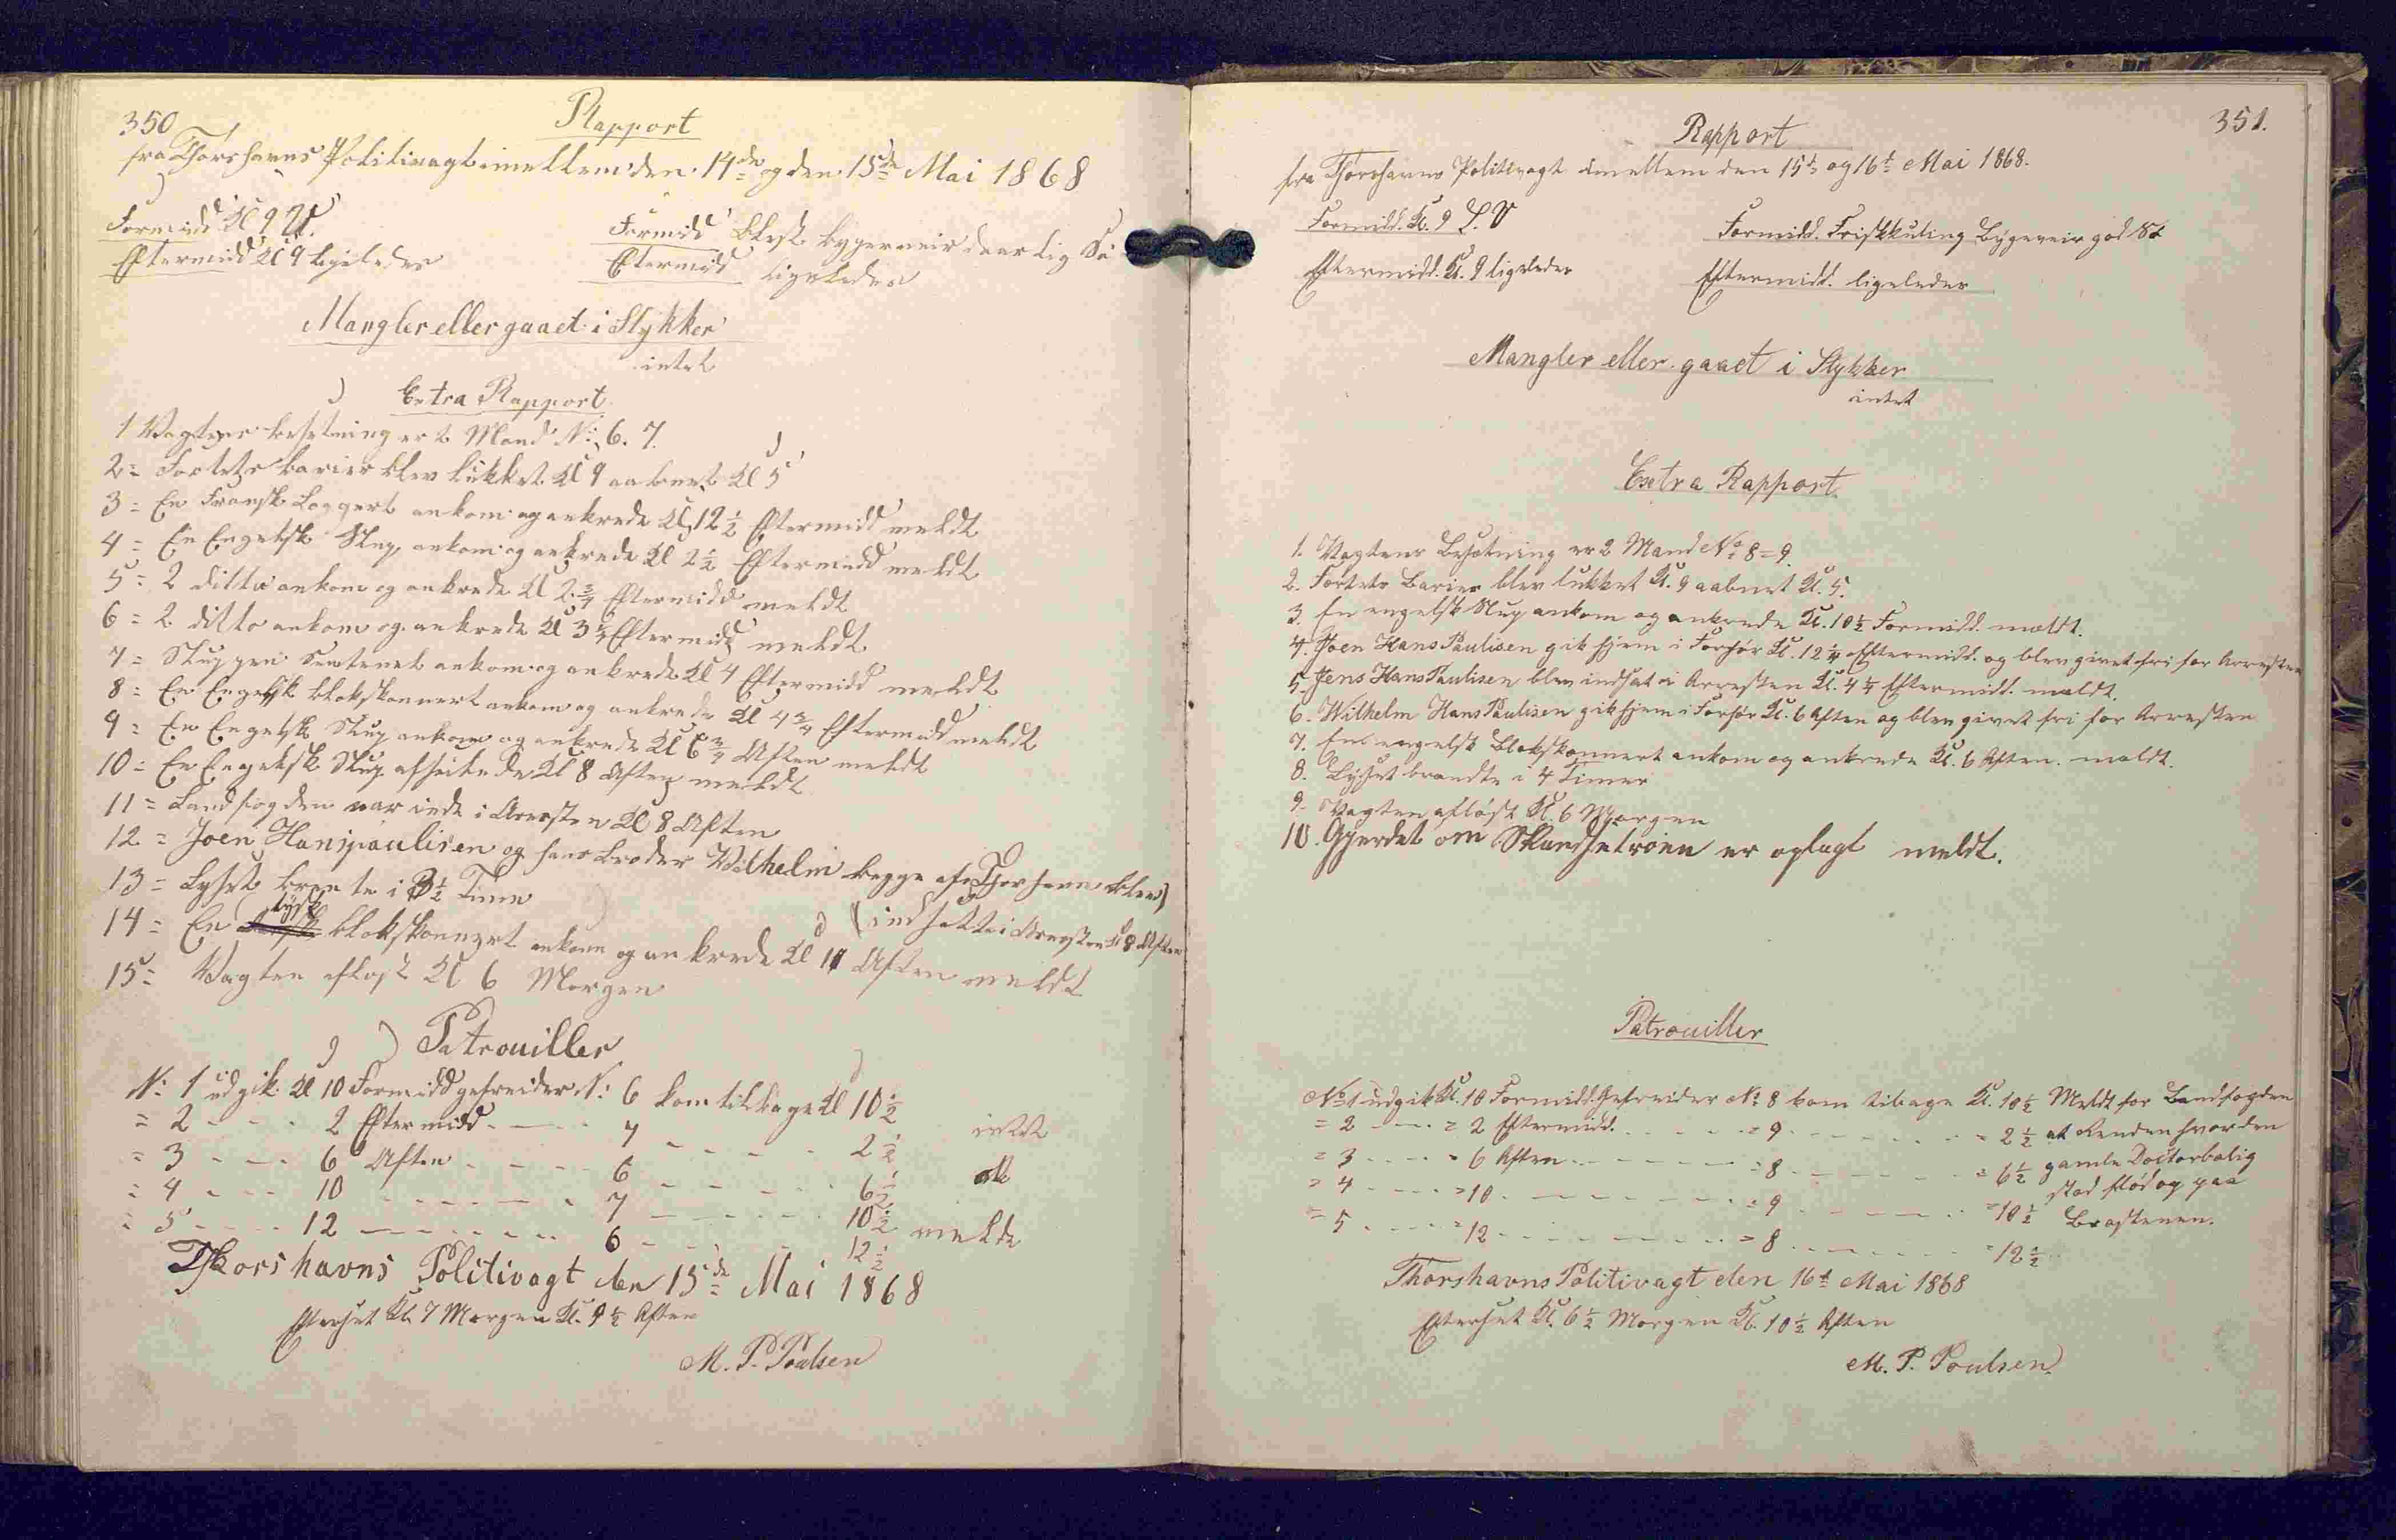 350
Rapport
fra Thorshavns Politivagt imellem den 14de og den 15de Mai 1868
Formidd Kl 9
Eftermidd Kl 9 ligeledes
Formidd Blæst bygeveir daarlig
Eftermidd ligeledes
Mangler eller gaaet i Stykker
intet
Extra Rapport
1 Vagtens besetning er 2 Mand No: 6. 7.
2 = Fortets barier blev lukket Kl 9 aabnet Kl 5
3 = En Fransk Loggert ankom og ankrede Kl 12 1/2 Eftermidd meldt
4 = En Engelsk Slup ankom og ankrede Kl 2 1/2 Eftermidd meldt
5 = 2 ditto ankom og ankrede Kl 2 3/4 Eftermidd meldt
6 = 2 ditto ankom og ankrede Kl 3 1/4 Eftermidd meldt
7 = Sluppen ankom og ankrede Kl 4 Eftermidd meldt
8 = En Engelsk blokskonnert ankom og ankrede Kl 4 3/4 Eftermidd meldt
9 = En Engelsk Slup ankom og ankrede Kl 6 3/4 Aften meldt
10 = En Engelsk Slup afseilede Kl 8 Aften meldt
11 = Landfogden var inde i Arresten Kl 8 Aften
12 = Joen Hanspaulisen og hans broder Wilhelm begge af Thorshavn blev
(indsatte i Arresten Kl 8 Aften
13 = Lyset brente i 3 1/2 Time
14 = En tysk blokskonnert ankom og ankrede Kl 11 Aften meldt
15 = Vagten afløst Kl 6 Morgen
Patrouiller
No: 1 udgik Kl 10 Formidd gefreider No: 6 kom tilbage Kl 10 1/2
= 2 - - - 2 Eftermidd - - - 7 - - - 2 1/2 intet
= 3 - - - 6 Aften - - - 6 - - - 6 1/2
= 4 - - - 10 - - - 7 - - - 10 1/2 melde
= 5 - - - 12 - - - 6 - - - 12 1/2
Thorshavns Politivagt den 15de Mai 1868
Efterset Kl. 7 Morgen Kl. 9 1/2 Aften
M. P. Poulsen
351.
Rapport
fra Thorshavns Politivagt imellem den 15d og 16d Mai 1868.
Formidd. Kl. 9
Eftermidd. Kl. 9 ligeledes
Formidd. Friskkuling Bygeveir god
Eftermidd. ligeledes
Mangler eller gaaet i Stykker
intet
Extra Rapport
1. Vagtens Besætning er 2 Mand No 8 = 9.
2. Fortets Barier blev lukket Kl. 9 aabnet Kl. 5.
3. En engelsk Slup ankom og ankrede Kl. 10 1/2 Formidd. meldt.
4. Joen Hans Paulisen gik hjem i Forhør Kl. 12 1/4 Eftermidd. og blev givet fri for Arresten
5. Jens Hans Paulisen blev indsat i Arresten Kl. 4 1/4 Eftermidd. meldt.
6. Wilhelm Hans Paulisen gik hjem i Forhør Kl. 6 Aften og blev givet fri for Arresten
7. En engelsk Blokskonnert ankom og ankrede Kl. 6 Aften. meldt.
8. Lyset brændte i 4 Timer
9. Vagten afløst Kl. 6 Morgen
10. Gjerdet om er oplagt meldt.
Patrouiller
No 1 udgik Kl. 10 Formidd. Gefreider No 8 kom tilbage Kl. 10 1/2 Meldt for Landfogden
= 2 - - - = 2 Eftermidd. - - - = 9 - - - = 2 1/2 at Renden hvor den
= 3 - - - = 6 Aften - - - = 8 - - - = 6 1/2 gamle Doctorbolig
= 4 - - - = 10 - - - = 9 - - - = 10 1/2 stod flød og paa
= 5 - - - = 12 - - - = 8 - - - = 12 1/2 Brostenen.
Thorshavns Politivagt den 16d Mai 1868
Efterset Kl. 6 1/2 Morgen Kl. 10 1/2 Aften
M. P. Poulsen